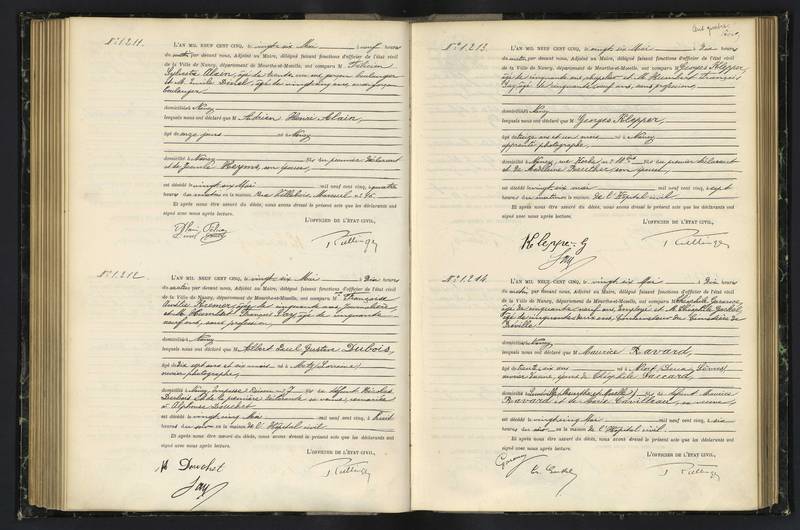 N° 1211.
L'AN MIL NEUF CENT CINQ, le vingt six Mai à neuf heures
du matin par devant nous, Adjoint au Maire, délégué faisant fonctions d'officier de l'état civil
de la Ville de Nancy, département de Meurthe-et-Moselle, ont comparu M.
Alain, âgé de trente un ans garçon boulanger
et M. Emile âgé de vingt cinq ans garçon
boulanger
domiciliés à Nancy
lesquels nous ont déclaré que M. Adrien Henri Alain,
âgé onze jours né à Nancy
domicilié à Nancy fils du premier déclarant
et de son épouse,
est décédé le vingt six Mai mil neuf cent cinq, à quatre
heures du matin en la maison rue
Et après nous être assuré du décès, nous avons dressé le présent acte que les déclarants ont
signé avec nous après lecture.
L'OFFICIER DE L'ÉTAT CIVIL,
N° 1212
L'AN MIL NEUF CENT CINQ, le vingt six Mai à Dix heures
du matin par devant nous, Adjoint au Maire, délégué faisant fonctions d'officier de l'état civil
de la Ville de Nancy, département de Meurthe-et-Moselle, ont comparu Me Françoise
Kremer âgée de cinquante ans journalière,
et M. Humbert François Jay âgé de cinquante
neuf ans, sans profession,
domiciliés à Nancy
lesquels nous ont déclaré que M. Albert Paul Gustave Dubois,
âgé Dix sept ans et six mois né à Metz, Lorraine
ouvrier photographe,
domicilié à Nancy, Impasse n° 7 fils de défunt Nicolas
Dubois et de la première déclarante sa veuve, remariée
à Alphonse Douchet
est décédé le vingt cinq Mai mil neuf cent cinq, à huit
heures du soir en la maison de l'Hôpital civil
Et après nous être assuré du décès, nous avons dressé le présent acte que les déclarants ont
signé avec nous après lecture.
L'OFFICIER DE L'ÉTAT CIVIL,
Douchet
Jay
N° 1213.
L'AN MIL NEUF CENT CINQ, le vingt six Mai à Dix heures
du matin par devant nous, Adjoint au Maire, délégué faisant fonctions d'officier de l'état civil
de la Ville de Nancy, département de Meurthe-et-Moselle, ont comparu M. Georges Klepper,
âgé de cinquante ans et M. Humbert François
Jay âgé de cinquante neuf ans, sans profession,
domiciliés à Nancy
lesquels nous ont déclaré que M. Georges Klepper,
âgé treize ans et un mois né à Nancy
apprenti photographe,
domicilié à Nancy, rue n° fils du premier déclarant
et de son épouse,
est décédé le vingt six mai mil neuf cent cinq, à sept
heures du matin en la maison de l'Hôpital civil
Et après nous être assuré du décès, nous avons dressé le présent acte que les déclarants ont
signé avec nous après lecture.
L'OFFICIER DE L'ÉTAT CIVIL,
Klepper G
Jay
N° 1214.
L'AN MIL NEUF CENT CINQ, le vingt six Mai à Dix heures
du matin par devant nous, Adjoint au Maire, délégué faisant fonctions d'officier de l'état civil
de la Ville de Nancy, département de Meurthe-et-Moselle, ont comparu M. Théophile
âgé de cinquante neuf ans, employé et M. Théophile
âgé de cinquante deux ans, Conservateur du Cimetière de
Préville
domiciliés à Nancy
lesquels nous ont déclaré que M. Maurice Ravard,
âgé trente six ans né à Niort (Deux Sèvres)
époux de
domicilié à fils de défunt Maurice
Ravard et de Marie sa veuve,
est décédé le vingt cinq Mai mil neuf cent cinq, à dix
heures du soir en la maison de l'Hôpital civil
Et après nous être assuré du décès, nous avons dressé le présent acte que les déclarants ont
signé avec nous après lecture.
L'OFFICIER DE L'ÉTAT CIVIL,